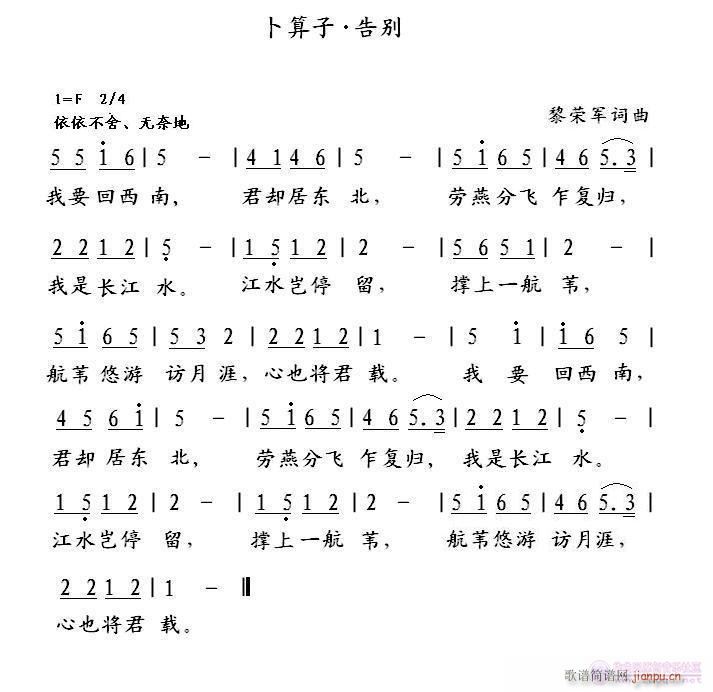 卜算子·告别
1=F 2/4
依依不舍、无奈地
黎荣军词曲
5 5 i 6 | 5 － | 4 1 4 6 | 5 － | 5 i 6 5 | 4 6 5. 3 |
我要回西南， 君却居东 北， 劳燕分飞 乍复归，
2 2 1 2 | 5 － | 1 5 1 2 | 2 － | 5 6 5 1 | 2 － |
我是长江 水。 江水岂停 留， 撑上一航 苇，
5 i 6 5 | 5 3 2 | 2 2 1 2 | 1 － | 5 i | i 6 5 |
航苇悠游 访月涯，心也将君 载。 我 要 回西南，
4 5 6 i | 5 － | 5 i 6 5 | 4 6 5. 3 | 2 2 1 2 | 5 － |
君却居东 北， 劳燕分飞 乍复归， 我是长江 水。
1 5 1 2 | 2 － | 1 5 1 2 | 2 － | 5 i 6 5 | 4 6 5. 3 |
江水岂停 留， 撑上一航 苇， 航苇悠游 访月涯，
2 2 1 2 | 1 － ‖
心也将君 载。
歌谱简谱网
jianpu.cn